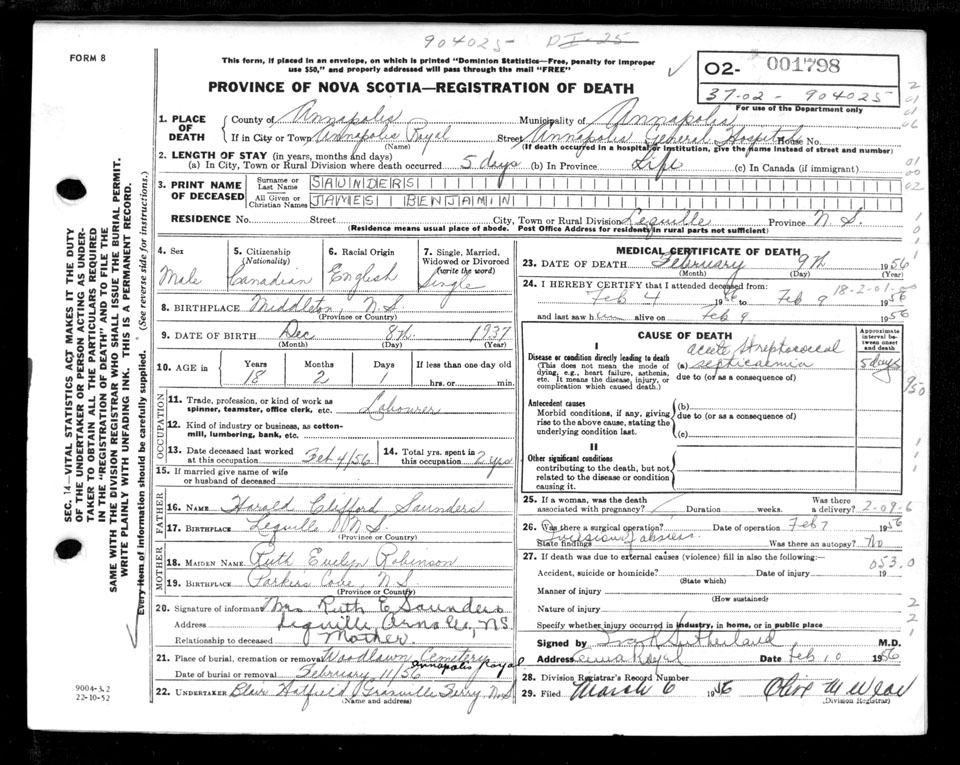 904025 DI-25
FORM 8
This form, if placed in an envelope, on which is printed "Dominion Statistics—Free, penalty for improper
use $50," and properly addressed will pass through the mail "FREE"
02- 001798
37-02 - 904025
For use of the Department only
PROVINCE OF NOVA SCOTIA—REGISTRATION OF DEATH
1. PLACE OF DEATH
County of Annapolis Municipality of Annapolis
If in City or Town Annapolis Royal Street Annapolis General Hospital House No.
(Name) (If death occurred in a hospital or institution, give the name instead of street and number)
2. LENGTH OF STAY (in years, months and days)
(a) In City, Town or Rural Division where death occurred 5 days (b) In Province Life (c) In Canada (if immigrant)
3. PRINT NAME OF DECEASED
Surname or Last Name SAUNDERS
All Given or Christian Names JAMES BENJAMIN
RESIDENCE No. Street City, Town or Rural Division Lequille Province N.S.
(Residence means usual place of abode. Post Office Address for residents in rural parts not sufficient)
4. Sex Male
5. Citizenship (Nationality) Canadian
6. Racial Origin English
7. Single, Married, Widowed or Divorced (write the word) Single
8. BIRTHPLACE Middleton, N.S.
(Province or Country)
9. DATE OF BIRTH Dec 8th 1937
(Month) (Day) (Year)
10. AGE in Years Months Days If less than one day old
18 2 1 hrs. or min.
OCCUPATION
11. Trade, profession, or kind of work as
spinner, teamster, office clerk, etc. Labourer
12. Kind of industry or business, as cotton-
mill, lumbering, bank, etc.
13. Date deceased last worked at this occupation Feb 4/56
14. Total yrs. spent in this occupation 2 yrs
15. If married give name of wife
or husband of deceased
FATHER
16. NAME Harold Clifford Saunders
17. BIRTHPLACE Lequille N.S.
(Province or Country)
MOTHER
18. MAIDEN NAME Ruth Evelyn Robinson
19. BIRTHPLACE Parkers Cove N.S.
(Province or Country)
20. Signature of informant Mrs. Ruth E Saunders
Address Lequille Anna Co., N.S.
Relationship to deceased Mother.
21. Place of burial, cremation or removal Woodlawn Cemetery Annapolis Royal
Date of burial or removal February 11/56
22. UNDERTAKER Blair Hatfield Granville Ferry, N.S.
(Name and address)
MEDICAL CERTIFICATE OF DEATH
23. DATE OF DEATH February 9th 1956
(Month) (Day) (Year)
24. I HEREBY CERTIFY that I attended deceased from: 18-2-01-00
Feb 4 1956 to Feb 9 1956
and last saw him alive on Feb 9 1956
CAUSE OF DEATH
Approximate interval between onset and death
I
Disease or condition directly leading to death
(This does not mean the mode of
dying, e.g., heart failure, asthenia,
etc. It means the disease, injury, or
complication which caused death.)
acute Streptococcal
(a) septicaemia 5 days
due to (or as a consequence of)
Antecedent causes
Morbid conditions, if any, giving
rise to the above cause, stating the
underlying condition last.
(b)
due to (or as a consequence of)
(c)
II
Other significant conditions
contributing to the death, but not
related to the disease or condition
causing it.
25. If a woman, was the death associated with pregnancy? Duration weeks. Was there a delivery? 2-09-6
26. Was there a surgical operation? Date of operation Feb 7 1956
State findings Incision abscess Was there an autopsy? No
27. If death was due to external causes (violence) fill in also the following: 053.0
Accident, suicide or homicide? Date of injury 19
(State which)
Manner of injury
(How sustained)
Nature of injury
Specify whether injury occurred in industry, in home, or in public place
Signed by Sutherland M.D.
Address Anna Royal Date Feb 10 1956
28. Division Registrar's Record Number
29. Filed March 6 1956
(Division Registrar)
SEC. 14—VITAL STATISTICS ACT MAKES IT THE DUTY
OF THE UNDERTAKER OR PERSON ACTING AS UNDER-
TAKER TO OBTAIN ALL THE PARTICULARS REQUIRED
IN THE "REGISTRATION OF DEATH" AND TO FILE THE
SAME WITH THE DIVISION REGISTRAR WHO SHALL ISSUE THE BURIAL PERMIT.
WRITE PLAINLY WITH UNFADING INK. THIS IS A PERMANENT RECORD.
Every item of information should be carefully supplied. (See reverse side for instructions.)
9004-3.2
22-10-52